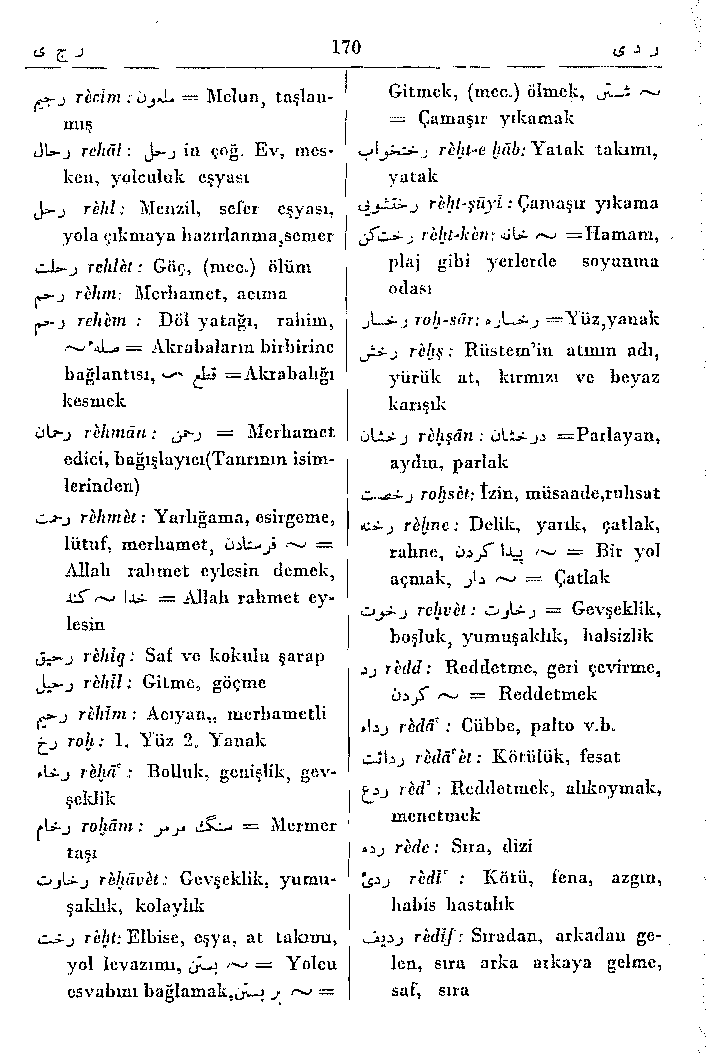 ر ج ی 170 ر د ی
رجیم rècim : ملعون = Melun, taşlan-
mış
رحال rehāl : رحل in çoğ. Ev, mes-
ken, yolculuk eşyası
رحل rèhl : Menzil, sefer eşyası,
yola çıkmaya hazırlanma,semer
رحلت rehlèt : Göç, (mec.) ölüm
رحم rèhm: Merhamet, acıma
رحم rehèm : Döl yatağı, rahim,
صلهٔ ~ = Akrabaların birbirine
bağlantısı, قطع ~ =Akrabalığı
kesmek
رحمان rèhmān : رحمن = Merhamet
edici, bağışlayıcı(Tanrının isim-
lerinden)
رحمت rèhmèt : Yarlığama, esirgeme,
lütuf, merhamet, ~ فرستادن =
Allah rahmet eylesin demek,
خدا ~ کند = Allah rahmet ey-
lesin
رحیق rèhîq : Saf ve kokulu şarap
رحیل rèhîl : Gitme, göçme
رحیم rèhîm : Acıyan,, merhametli
رخ roḫ : 1. Yüz 2. Yanak
رخاء rèḫāʿ : Bolluk, genişlik, gev-
şeklik
رخام roḫām : سنگ مرمر = Mermer
taşı
رخاوت rèḫāvèt : Gevşeklik, yumu-
şaklık, kolaylık
رخت rèḫt: Elbise, eşya, at takımı,
yol levazımı, ~ بستن = Yolcu
esvabını bağlamak, ~ بر بستن =
Gitmek, (mec.) ölmek, ~ شستن
= Çamaşır yıkamak
رختخواب rèḫt-e ḫāb: Yatak takımı,
yatak
رختشویی rèḫt-şūyî : Çamaşır yıkama
رختکن rèḫt-kèn: ~ خانه =Hamam,
plaj gibi yerlerde soyunma
odası
رخسار roḫ-sār: رخساره =Yüz,yanak
رخش rèḫş : Rüstem'in atının adı,
yürük at, kırmızı ve beyaz
karışık
رخشان rèḫşān : درخشان =Parlayan,
aydın, parlak
رخصت roḫsèt: İzin, müsaade,ruhsat
رخنه rèḫne : Delik, yarık, çatlak,
rahne, ~ پیدا کردن = Bir yol
açmak, ~ دار = Çatlak
رخوت reḫvèt : رخاوت = Gevşeklik,
boşluk, yumuşaklık, halsizlik
رد rèdd : Reddetme, geri çevirme,
~ کردن = Reddetmek
رداء rèdāʿ : Cübbe, palto v.b.
ردائت rèdāʿèt : Kötülük, fesat
ردع rèdʾ : Reddetmek, alıkoymak,
menetmek
رده rède : Sıra, dizi
ردیٔ rèdîʿ : Kötü, fena, azgın,
habis hastalık
ردیف rèdîf : Sıradan, arkadan ge-
len, sıra arka arkaya gelme,
saf, sıra